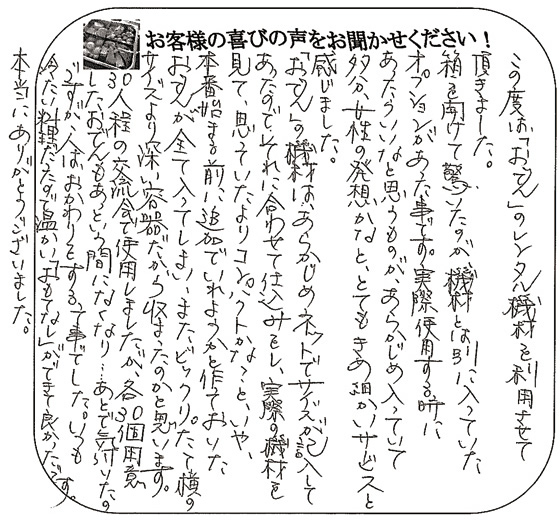 お客様の喜びの声をお聞かせください！
この度は「おでん」のレンタル機材を利用させて
頂きました。
箱を開けて驚いたのが機材とは別に入っていた
オプションがあった事です。実際使用する時に
あったらいいなと思うものが、あらかじめ入っていて
多分、女性の発想かなと、とてもきめ細かいサービスと
感じました。
「おでん」の機材は、あらかじめネットでサイズが記入して
あったので、それに合わせて仕込みをし、実際の機材を
見て、思っていたよりコンパクトかな？と、いや、
本番始まる前に追加でいれようかと作ておいた
おでんが全て入ってしまい、またビックリ。たて横の
サイズより深い容器だから収まったのかと思います。
30人程の交流会で使用しましたが、各30個用意
したおでんもあという間になくなり…あとで気付いたの
ですが、1人はおかわりをする。で事でした。いつも
冷たい料理だたので温かい「おもてなし」ができて良かったです。
本当にありがとうございました。